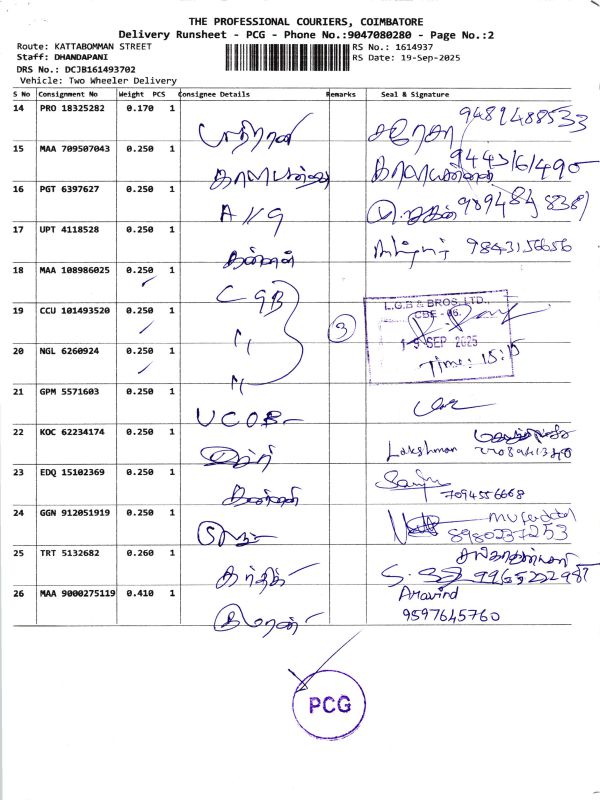 THE PROFESSIONAL COURIERS, COIMBATORE
Delivery Runsheet - PCG - Phone No.:9047080280 - Page No.:2
Route: KATTABOMMAN STREET RS No.: 1614937
Staff: DHANDAPANI RS Date: 19-Sep-2025
DRS No.: DCJB161493702
Vehicle: Two Wheeler Delivery
S No Consignment No Weight PCS Consignee Details Remarks Seal & Signature
14 PRO 18325282 0.170 1 9489488533
15 MAA 709507043 0.250 1 9443161490
16 PGT 6397627 0.250 1 AVG
17 UPT 4118528 0.250 1 கண்ணன் 9843156656
18 MAA 108986025 0.250 1 CGB
19 CCU 101493520 0.250 1 〃 3 L.G.B & BROS. LTD.,
CBE - 06.
19 SEP 2025
20 NGL 6260924 0.250 1 〃 Time: 15:15
21 GPM 5571603 0.250 1 UCOB
22 KOC 62234174 0.250 1 Lakshman
23 EDQ 15102369 0.250 1 கண்ணன் Sanju
7094556668
24 GGN 912051919 0.250 1 8980237253
25 TRT 5132682 0.260 1 கார்திக் 9965222987
26 MAA 9000275119 0.410 1 Aravind
9597645760
PCG